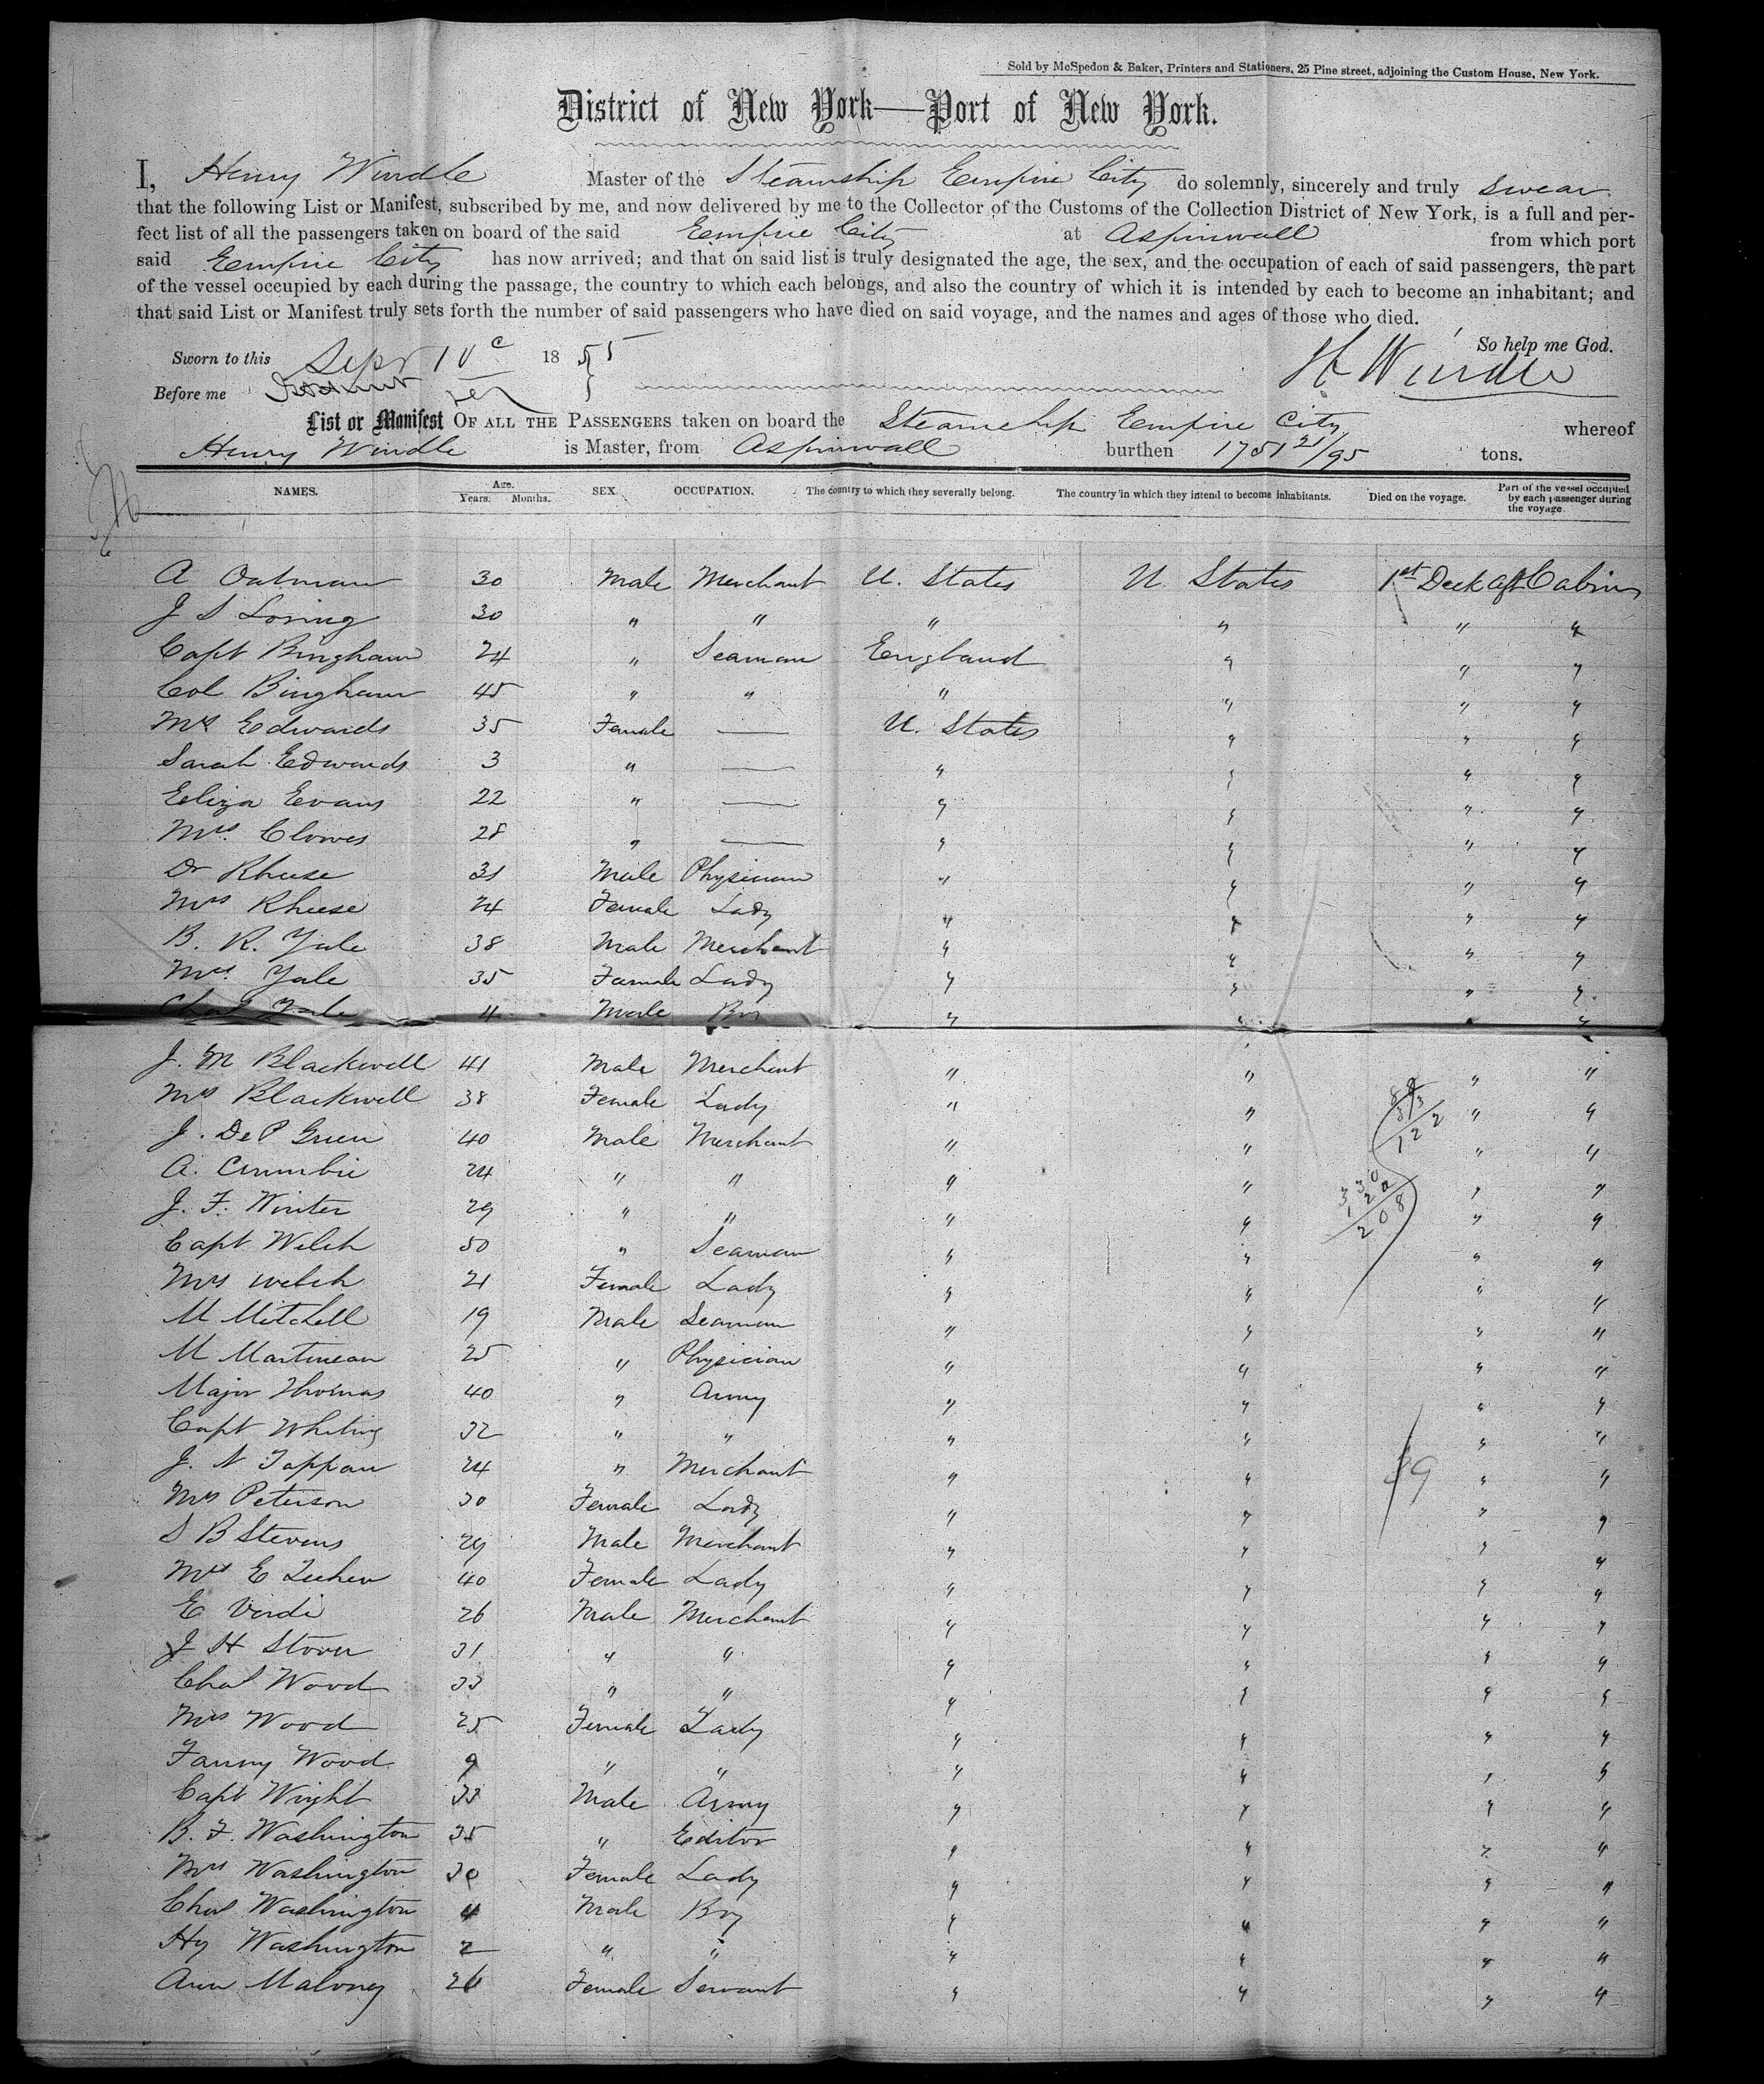 Sold by McSpedon & Baker, Printers and Stationers, 25 Pine street, adjoining the Custom House, New York.
District of New York—Port of New York.
I, Henry Windle Master of the Steamship Empire City do solemnly, sincerely and truly swear
that the following List or Manifest, subscribed by me, and now delivered by me to the Collector of the Customs of the Collection District of New York, is a full and per-
fect list of all the passengers taken on board of the said Empire City at Aspinwall from which port
said Empire City has now arrived; and that on said list is truly designated the age, the sex, and the occupation of each of said passengers, the part
of the vessel occupied by each during the passage, the country to which each belongs, and also the country of which it is intended by each to become an inhabitant; and
that said List or Manifest truly sets forth the number of said passengers who have died on said voyage, and the names and ages of those who died.
So help me God.
Sworn to this Sept 10 1855
H Windle
Before me
List or Manifest OF ALL THE PASSENGERS taken on board the Steamship Empire City whereof
Henry Windle is Master, from Aspinwall burthen 1751 21/95 tons.
NAMES. Age. Years. Months. SEX. OCCUPATION. The country to which they severally belong. The country in which they intend to become inhabitants. Died on the voyage. Part of the vessel occupied by each passenger during the voyage.
A Oatman 30 Male Merchant U. States U. States 1st Deck Aft Cabin
J S Loring 30 " " " " " "
Capt Bingham 24 " Seaman England " " "
Col Bingham 45 " " " " " "
Mrs Edwards 35 Female — U. States " " "
Sarah Edwards 3 " — " " " "
Eliza Evans 22 " — " " " "
Mrs. Clowes 28 " — " " " "
Dr Rheese 31 Male Physician " " " "
Mrs Rheese 24 Female Lady " " " "
B. R. Yale 38 Male Merchant " " " "
Mrs. Yale 35 Female Lady " " " "
Chas Yale 4 Male Boy " " " "
J. M Blackwell 41 Male Merchant " " " "
Mrs Blackwell 38 Female Lady " " " "
J. De P Green 40 Male Merchant " " " "
A. Crumbie 24 " " " " " "
J. F. Winter 29 " " " " " "
Capt Welch 50 " Seaman " " " "
Mrs Welch 21 Female Lady " " " "
M Mitchell 19 Male Seaman " " " "
M Martineau 25 " Physician " " " "
Major Thomas 40 " Army " " " "
Capt Whiting 32 " " " " " "
J. N Tappan 24 " Merchant " " " "
Mrs Peterson 30 Female Lady " " " "
S B Stevens 29 Male Merchant " " " "
Mrs E 40 Female Lady " " " "
E Verdi 26 Male Merchant " " " "
J H Stover 31 " " " " " "
Chas Wood 33 " " " " " "
Mrs Wood 25 Female Lady " " " "
Fanny Wood 9 " " " " " "
Capt Wright 33 Male Army " " " "
B. F. Washington 35 " Editor " " " "
Mrs Washington 30 Female Lady " " " "
Chas Washington 4 Male Boy " " " "
Hy Washington 2 " " " " " "
Ann Maloney 26 Female Servant " " " "
122
208